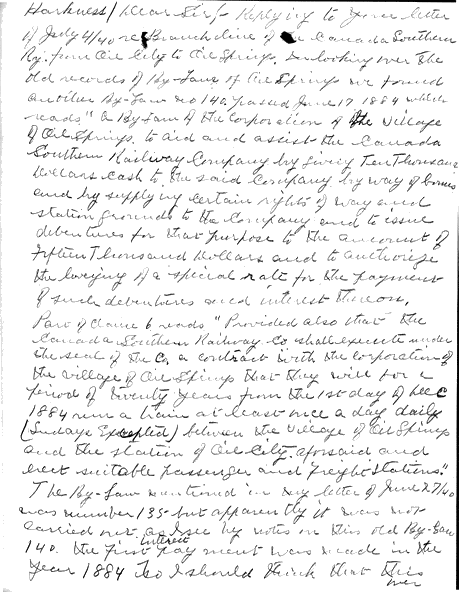 Harkness/ Dear Sir/- Replying to your letter
of July 4/40 re Branch line of the Canada Southern
Ry. from Oil City to Oil Springs. In looking over the
old records of By-Laws of Oil Springs we found
another By-Law no 140. passed June 17 1884 which
reads "A By Law of the Corporation of the Village
of Oil Springs to aid and assist the Canada
Southern Railway Company by giving Ten Thousand
Dollars cash to the said Company by way of bonus
and by supplying certain rights of way and
station grounds to the Company and to issue
debentures for that purpose to the amount of
Fifteen Thousand Dollars and to authorize
the levying of a special rate for the payment
of such debentures and interest thereon.
Part of clause 6 reads "Provided also that the
Canada Southern Railway Co shall execute under
the seal of the Co, a contract with the corporation of
the village of Oil Springs that they will for a
period of twenty years from the 1st day of Dec
1884 run a train at least once a day daily
(Sundays Excepted) between the Village of Oil Springs
and the station of Oil City aforsaid and
erect suitable passenger and freight stations."
The By-Law mentioned in my letter of June 27/40
was number 135 but apparently it was not
carried out, as I see by notes on this old By-Law
140. the first interest payment was made in the
Year 1884 so I should think that this
over